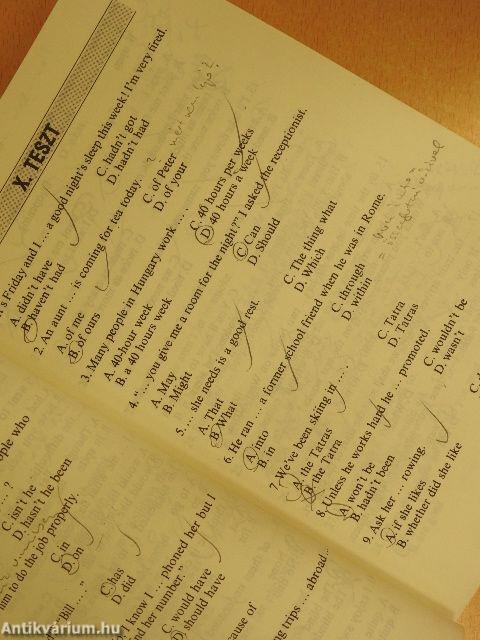 X. TESZT
's Friday and I ... a good night's sleep this week! I'm very tired.
A. didn't have
C. hadn't got
B. haven't had
D. hadn't had
2. An aunt ... is coming for tea today.
A. of me
C. of Peter
B. of ours
D. of your
3. Many people in Hungary work ....
A. 40-hour week
C. 40 hours per weeks
B. a 40 hours week
D. 40 hours a week
4. "... you give me a room for the night?" I asked the receptionist.
A. May
C. Can
B. Might
D. Should
5. ... she needs is a good rest.
A. That
C. The thing what
B. What
D. Which
6. He ran ... a former school friend when he was in Rome.
A. into
C. through
B. in
D. within
7. We've been skiing in ....
A. the Tatras
C. Tatra
B. the Tatra
D. Tatras
8. Unless he works hard he ... promoted.
A. won't be
C. wouldn't be
B. hadn't been
D. wasn't
9. Ask her ... rowing.
A. if she likes
B. whether did she like
ople who
... ?
C. isn't he
D. hasn't he been
him to do the job properly.
C. in
D. on
bill ... "
C. has
D. did
I know I ... phoned her but I
nd her number."
C. would have
D. should have
cause of
ng trips ... abroad...
Antikvárium.hu